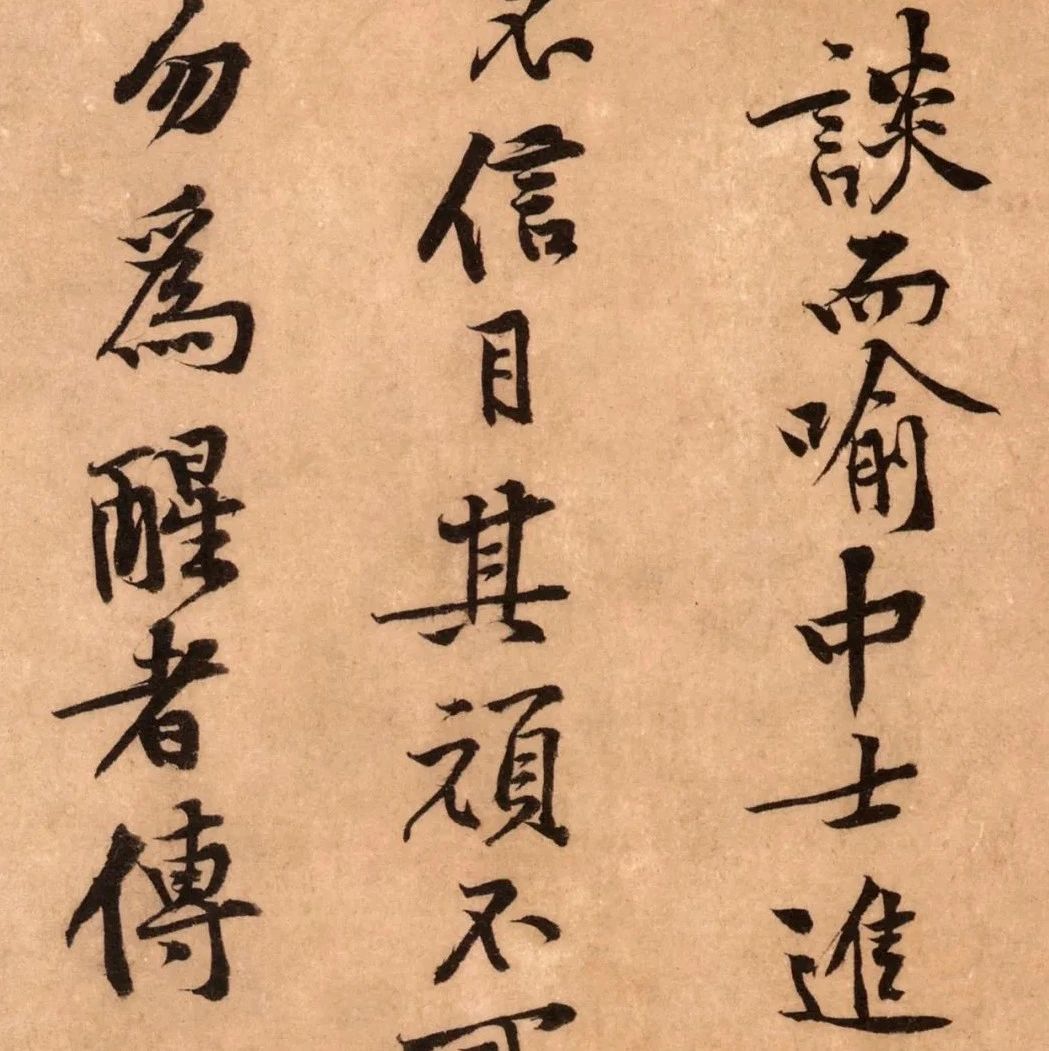 談而喻中士進
不信目其頑不可
勿為醒者傳